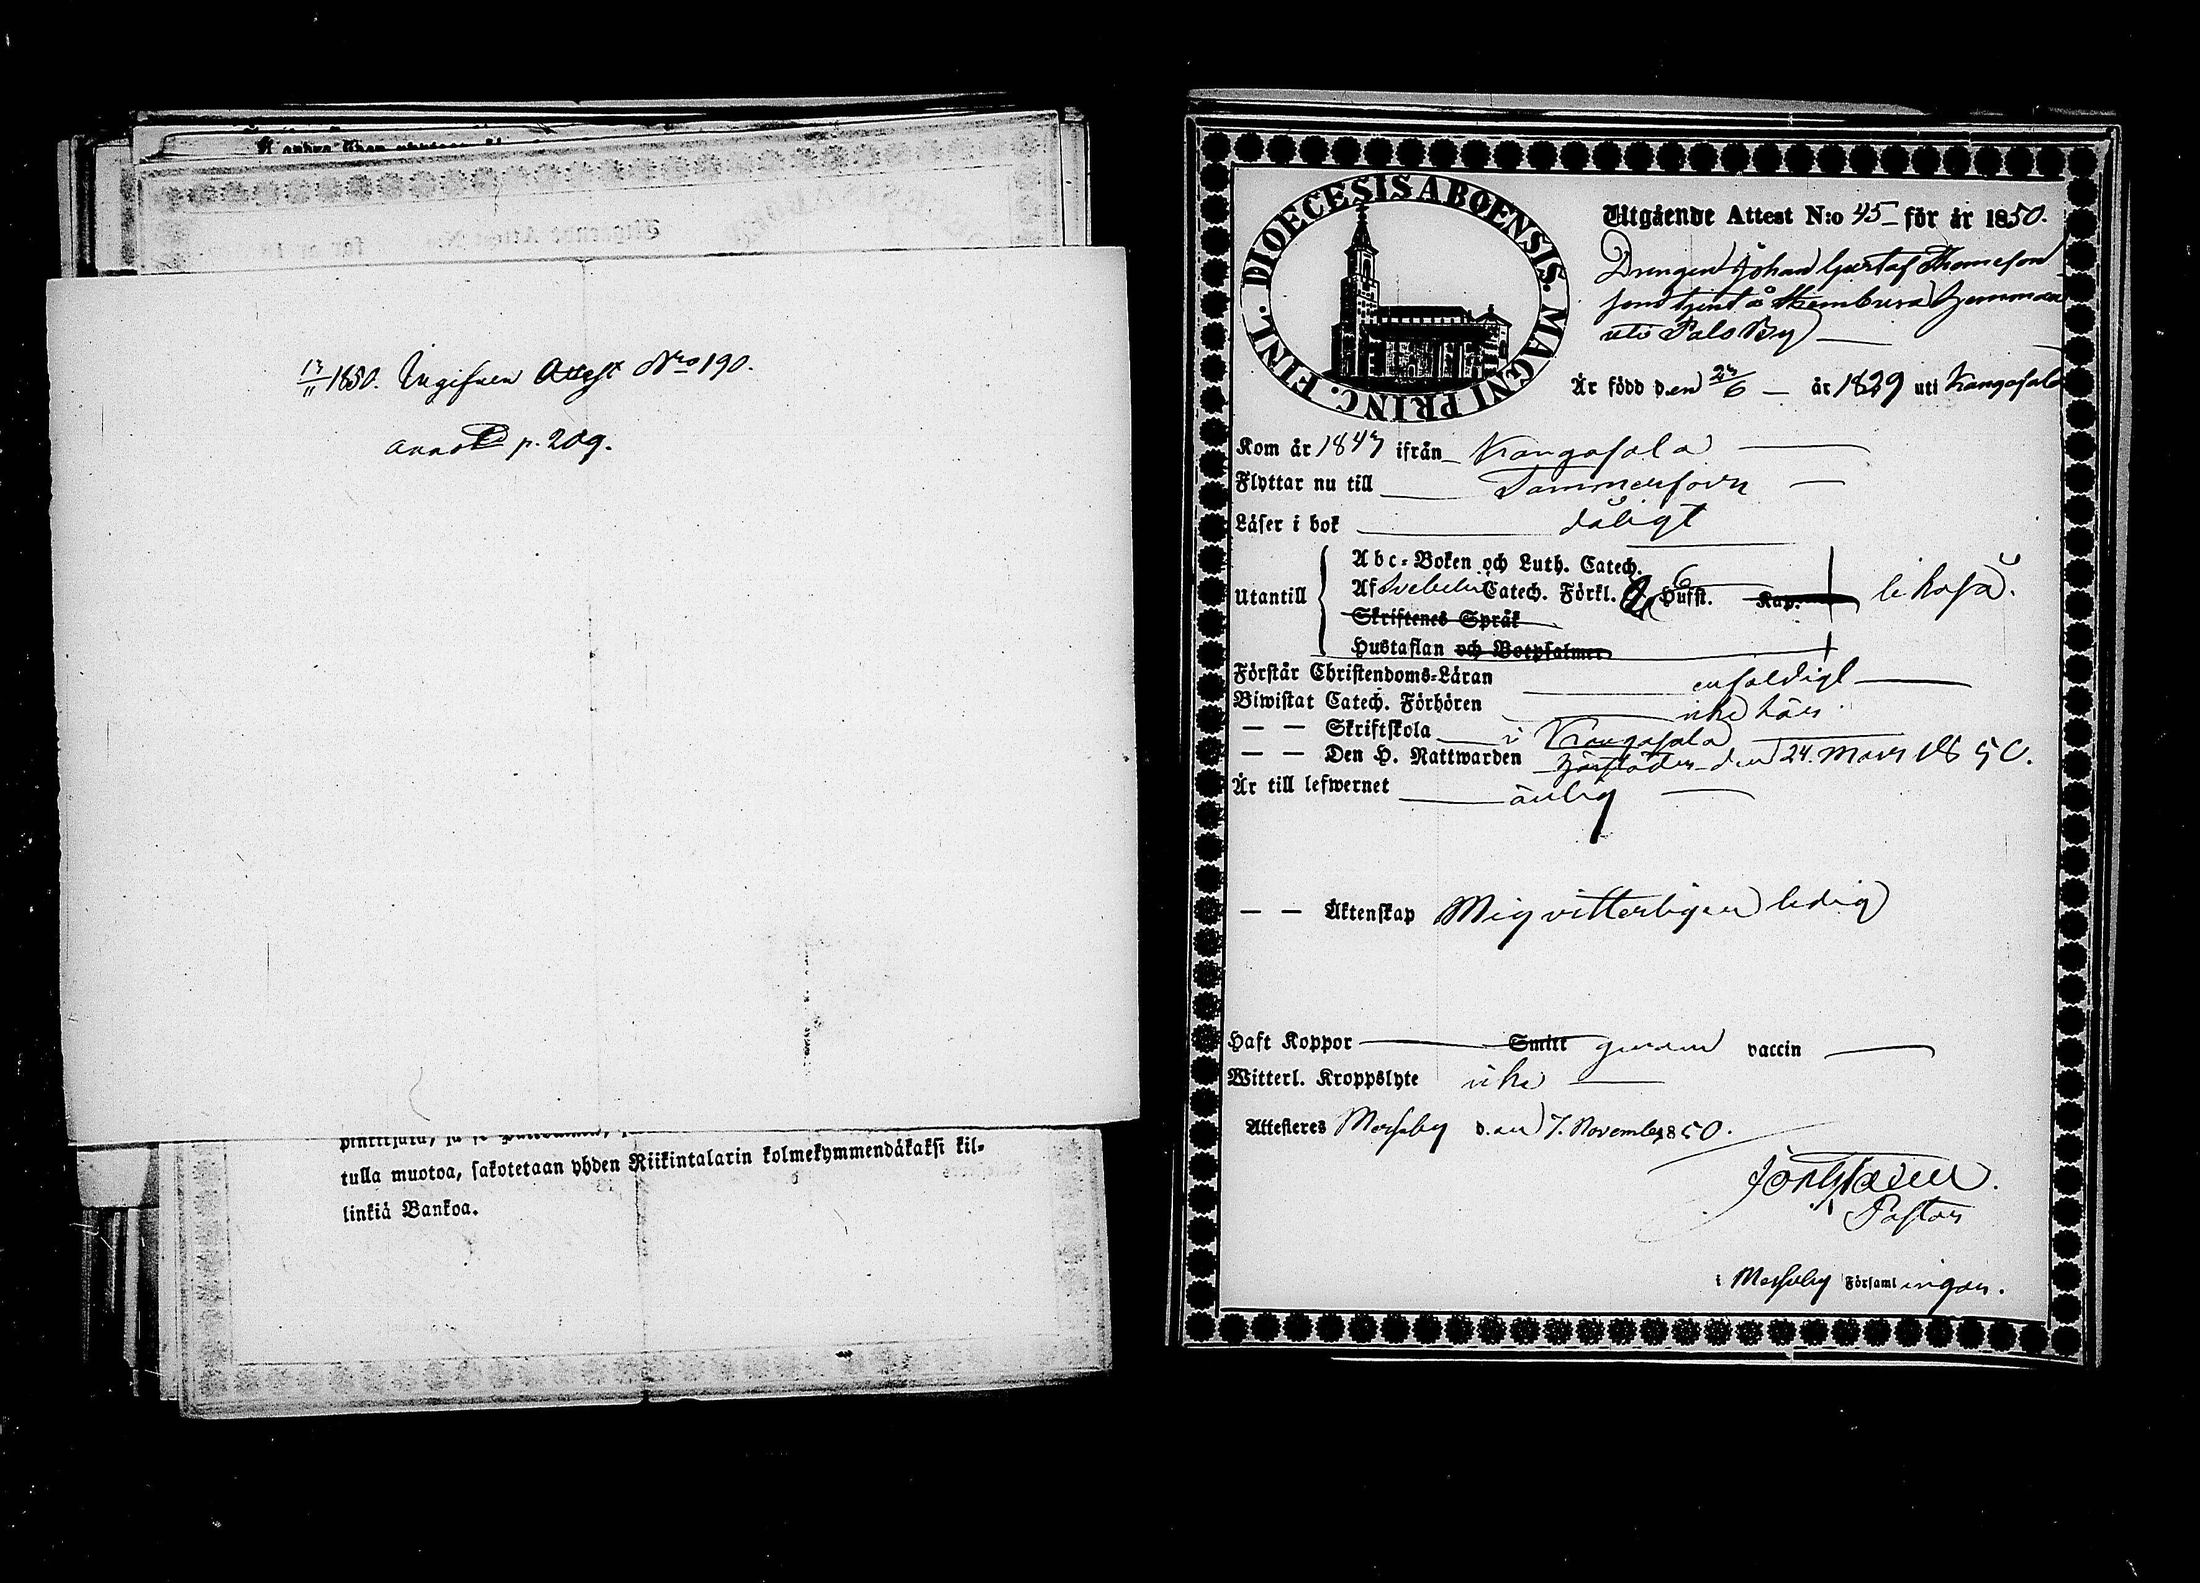 13/11 1850. Ingifven Attest Nro 190.
annot p. 209.
tulla muotoa, sakotetaan yhden Riikintalarin kolmekymmendäkaksi kil-
linkiä Bankoa.
FINL. DIOECESIS ABOENSIS. MAGNI PRINC.
Utgående Attest N:o 45 för år 1850.
Drengen Johan Gustaf Thomeson
som tjent å Hemman
uti Palo By
Är född den /6 år 1829 uti Kangasala
Kom år 1847 ifrån Kangasala
Flyttar nu till Tammerfors
Läser i bok dåligt
Utantill
Abc-Boken och Luth. Catech.
Af Svebelii Catech. Förkl. 6 Hufst. Kap.
likaså.
Skriftenes Språk
Hustaflan och Botpsalmer
Förstår Christendoms-Läran enfaldigt
Biwistat Catech. Förhören icke här.
— — Skriftskola i Kangasala
— — Den H. Nattwarden härstädes den 24. Mars 1850.
Är till lefwernet ärlig
— — Äktenskap Mig vitterligen ledig
Haft Koppor Smitt genom vaccin
Witterl. Kroppslyte icke
Attesteras Messuby den 7. November 1850.
Pastor
i Messuby Församlingen.